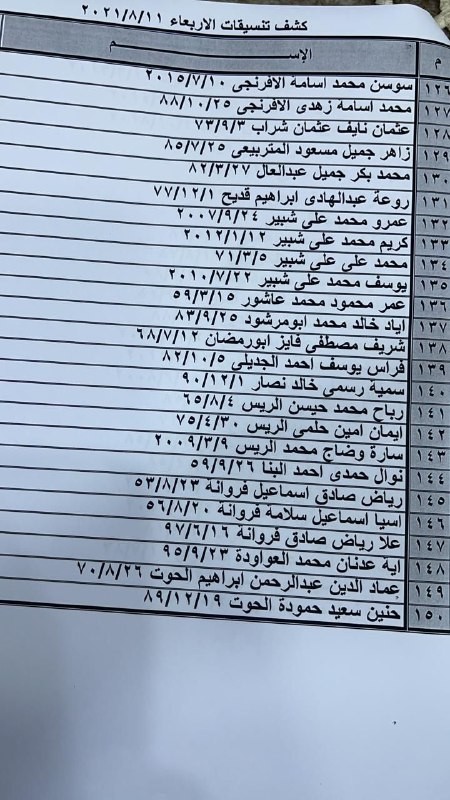 كشف تنسيقات الاربعاء ٢٠٢١/٨/١١
م الإســـــم
١٢٦ سوسن محمد اسامة الافرنجى ٢٠١٥/٧/١٠
١٢٧ محمد اسامة زهدى الافرنجى ٨٨/١٠/٢٥
١٢٨ عثمان نايف عثمان شراب ٧٣/٩/٣
١٢٩ زاهر جميل مسعود المتربيعى ٨٥/٧/٢٥
١٣٠ محمد بكر جميل عبدالعال ٨٢/٣/٢٧
١٣١ روعة عبدالهادى ابراهيم قديح ٧٧/١٢/١
١٣٢ عمرو محمد على شبير ٢٠٠٧/٩/٢٤
١٣٣ كريم محمد على شبير ٢٠١٢/١/١٢
١٣٤ محمد على على شبير ٧١/٣/٥
١٣٥ يوسف محمد على شبير ٢٠١٠/٧/٢٢
١٣٦ عمر محمود محمد عاشور ٥٩/٣/١٥
١٣٧ اياد خالد محمد ابومرشود ٨٣/٩/٢٥
١٣٨ شريف مصطفى فايز ابورمضان ٦٨/٧/١٢
١٣٩ فراس يوسف احمد الجديلى ٨٢/١٠/٥
١٤٠ سمية رسمى خالد نصار ٩٠/١٢/١
١٤١ رباح محمد حيسن الريس ٦٥/٨/٤
١٤٢ ايمان امين حلمى الريس ٧٥/٤/٣٠
١٤٣ سارة وضاح محمد الريس ٢٠٠٩/٣/٩
١٤٤ نوال حمدى احمد البنا ٥٩/٩/٢٦
١٤٥ رياض صادق اسماعيل فروانة ٥٣/٨/٢٣
١٤٦ اسيا اسماعيل سلامة فروانة ٥٦/٨/٢٠
١٤٧ علا رياض صادق فروانة ٩٧/٦/١٦
١٤٨ اية عدنان محمد العواودة ٩٥/٩/٢٣
١٤٩ عماد الدين عبدالرحمن ابراهيم الحوت ٧٠/٨/٢٦
١٥٠ حنين سعيد حمودة الحوت ٨٩/١٢/١٩